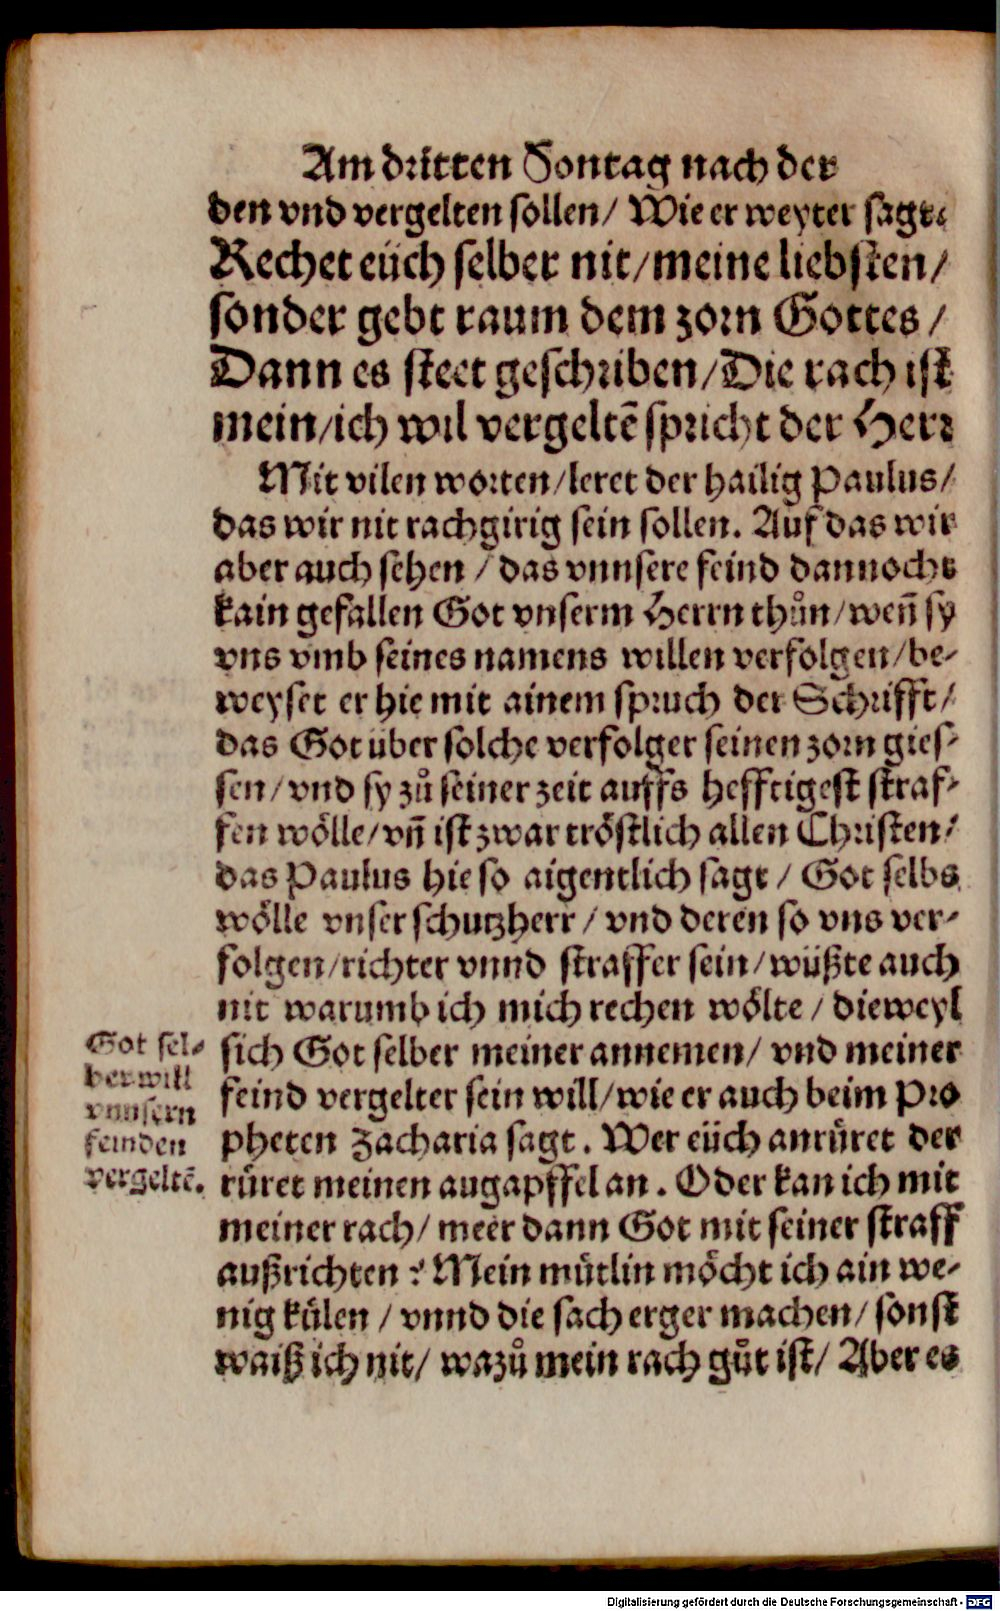 Am dritten Sontag nach der
den vnd vergelten sollen/ Wie er weyter sagt.
Rechet eüch selber nit/meine liebsten/
sonder gebt raum dem zorn Gottes /
Dann es steet geschriben/Die rach ist
mein/ich wil vergeltē spricht der Herr
Mit vilen worten/leret der hailig Paulus/
das wir nit rachgirig sein sollen. Auf das wir
aber auch sehen / das vnnsere feind dannocht
kain gefallen Got vnserm Herrn thůn/weñ sy
vns vmb seines namens willen verfolgen/be-
weyset er hie mit ainem spruch der Schrifft/
das Got uber solche verfolger seinen zorn gies-
sen/vnd sy zů seiner zeit auffs hefftigest straf-
fen wölle/vñ ist zwar tröstlich allen Christen/
das Paulus hie so aigentlich sagt / Got selbs
wölle vnser schutzherr / vnd deren so vns ver-
folgen/richter vnnd straffer sein/wüßte auch
nit warumb ich mich rechen wölte / dieweyl
sich Got selber meiner annemen/ vnd meiner
feind vergelter sein will/wie er auch beim Pro
pheten Zacharia sagt. Wer eüch anrüret der
rüret meinen augapffel an. Oder kan ich mit
meiner rach/ meer dann Got mit seiner straff
außrichten ? Mein mütlin möcht ich ain we-
nig külen / vnnd die sach erger machen/ sonst
waiß ich nit/ wazů mein rach gůt ist/ Aber es
Got sel-
ber will
vnnsern
feinden
vergeltē.
Digitalisierung gefördert durch die Deutsche Forschungsgemeinschaft - DFG